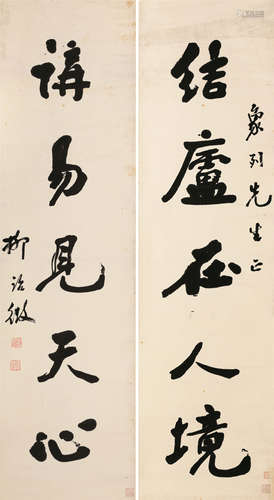 結廬在人境
象列先生正
講易見天心
柳詒徵